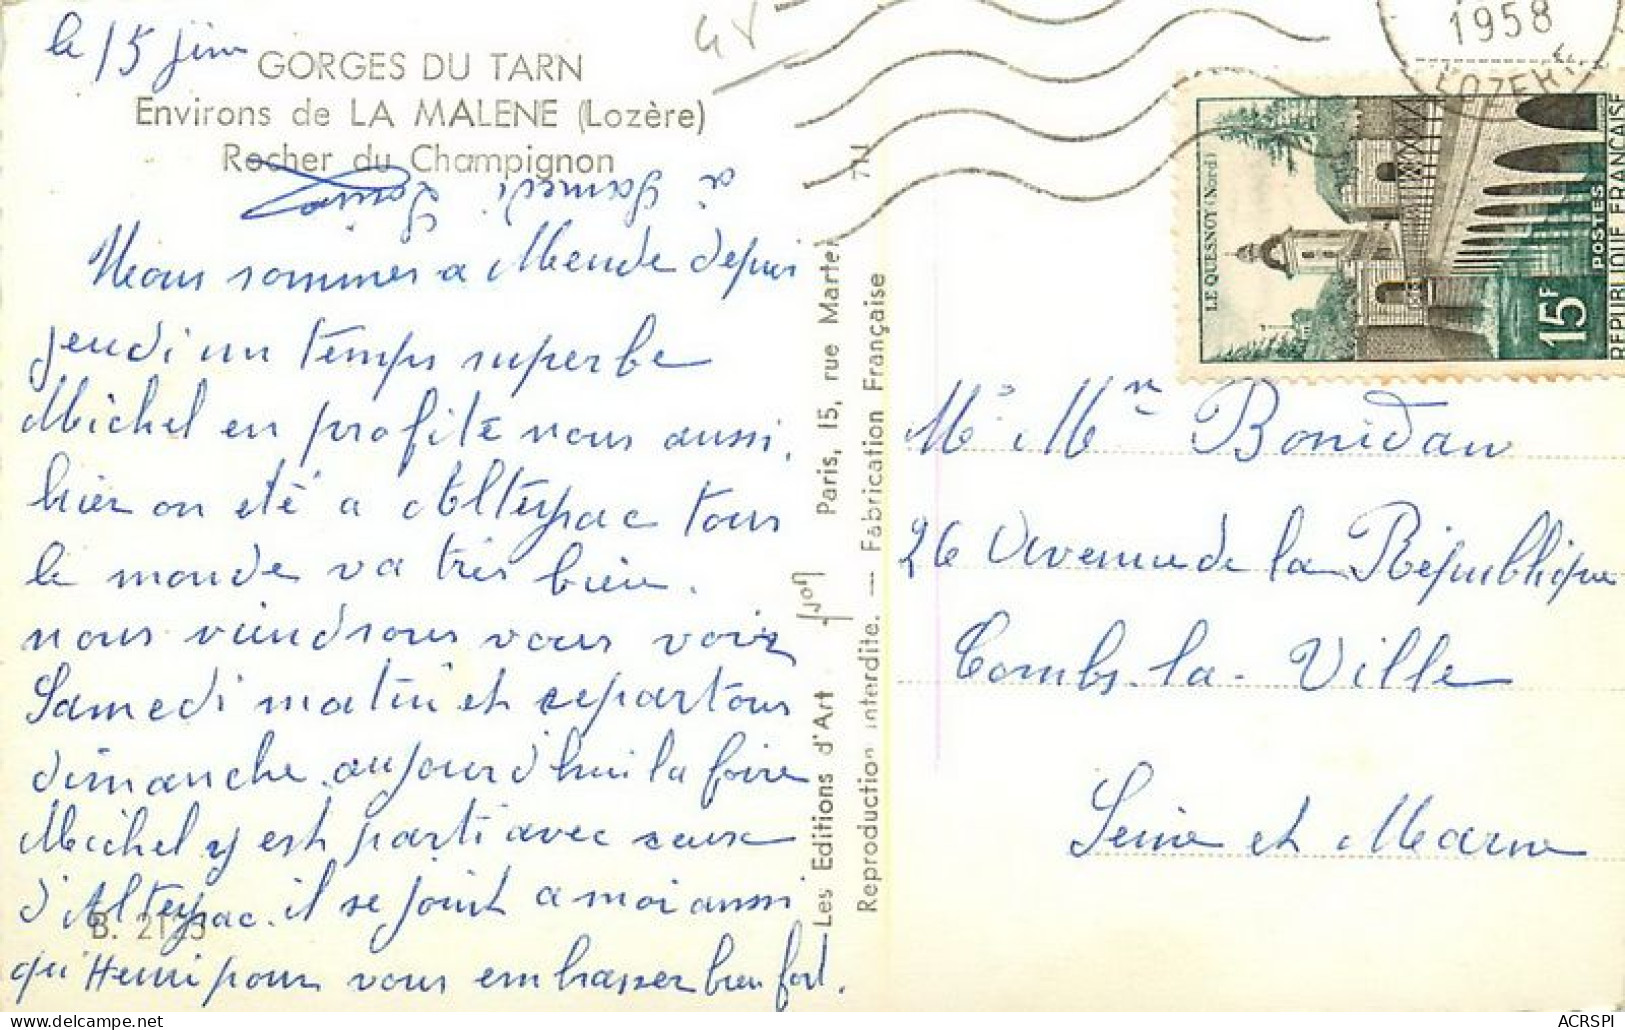 le 15 juin
GORGES DU TARN
Environs de LA MALENE (Lozère)
Rocher du Champignon
à Samedi. Louise
Nous sommes a Mende depuis
jeudi un temps superbe
Michel en profite nous aussi.
hier on été a Alteyrac tous
le monde va très bien.
nous viendrons vous voir
Samedi matin et repartons
dimanche. aujourd'hui la foire
Michel y est parti avec ceux
d'Alteyrac. il se joint a moi aussi
qu'Henri pour vous embrasser bien fort.
B. 2123
Les Editions d'Art Yvon Paris, 15, rue Martel
Reproduction interdite. — Fabrication Française
1958
LOZERE
LE QUESNOY (Nord)
15F
POSTES
REPUBLIQUE FRANÇAISE
Mr Mme Bonidau
26 Avenue de la République
Combs-la-Ville
Seine et Marne
ACRSPI